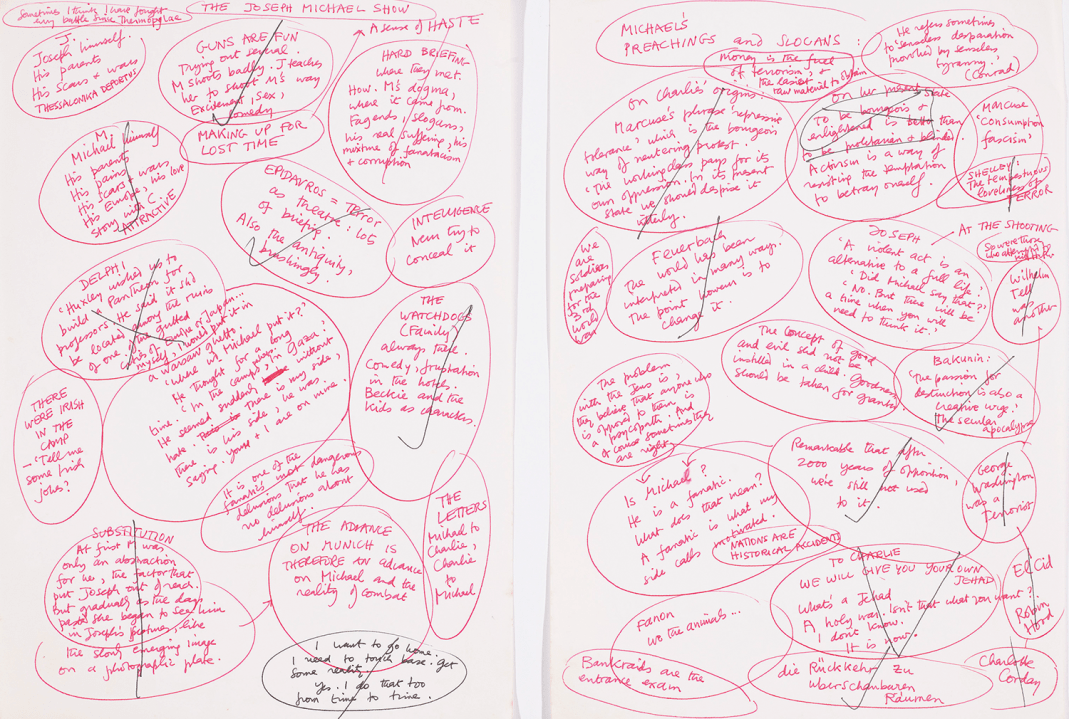 Sometimes I think I have fought
every battle since Thermopylae
THE JOSEPH MICHAEL SHOW
J.
Joseph himself.
His parents
His scars + wars
THESSALONIKA DEPORTUS
GUNS ARE FUN
Trying out several.
M shoots badly. J teaches
her to shoot M's way
Excitement, sex,
comedy
A sense of HASTE
HARD BRIEFING
where they met.
How. M's dogma,
where it came from.
Fagends, slogans,
his real suffering, his
mixture of fanaticism
+ corruption
MAKING UP FOR
LOST TIME
M.
Michael himself
His parents
His pains
His scars + wars
His Europe, his love
story with C.
ATTRACTIVE
EPIDAVROS = TERROR
as theatre: LOS
of briefing.
Also the antiquity,
INTELLIGENCE
Never try to
conceal it
DELPHI
'Huxley wished us to
build a Pantheon for
professors. He said it shd
be located among the ruins
of one of the gutted
cities of Europe or Japan...
myself, I would put it in
a Warsaw ghetto.
'Where wd Michael put it?'
He thought for a long
time. 'In the camps? In Gaza?'
He seemed suddenly without
hate. There is my side,
there is his side, he was
saying. Yours + I are on mine.
THE
WATCHDOGS
(Family)
always there.
Comedy, frustration
in the hotels.
Beckie and the
kids as characters.
THERE
WERE IRISH
IN THE
CAMP
- 'Tell me
some Irish
jokes?'
It is one of the
fanatic's most dangerous
delusions that he has
no delusions about
himself.
SUBSTITUTION
At first M was
only an abstraction
for her, the factor that
put Joseph out of reach.
But gradually as the days
pass she began to see him
in Joseph's features, like
the slowly emerging image
on a photographic plate.
THE ADVANCE
ON MUNICH IS
THEREFORE AN ADVANCE
on Michael and the
reality of combat
THE
LETTERS
Michael to
Charlie,
Charlie
to
Michael
I want to go home.
I need to touch base. get
some reality.
Yes. I do that too
from time to time.
MICHAEL'S
PREACHINGS and SLOGANS:
He refers sometimes
to 'senseless desperation
provoked by senseless
tyranny.'
(Conrad)
Money is the fuel
of terrorism, +
the easiest
raw material to obtain
On Charlie's origins:
Marcuse's phrase repressive
tolerance, which is the bourgeois
way of neutering protest.
'The working class pays for its
own oppression. In its present
state we should despise it
utterly.
On her present state
To be bourgeois +
enlightened is better than
to be proletarian + blinded
Activism is a way of
resisting the temptation
to betray oneself.
MARCUSE
'Consumption
fascism'
SHELLEY:
The tempestuous
loveliness of
TERROR
We are
soldiers
preparing
for the
3rd
world
war
Feuerbach
The world has been
interpreted in many ways.
The point however
is to
change it.
JOSEPH
'A violent act is an
alternative to a full life.'
'Did Michael say that?'
'No. But there will be
a time when you will
need to think it.'
AT THE SHOOTING
So were those
Wilhelm
Tell
was
another
The concept of good
and evil shd not be
instilled in a child. Goodness
should be taken
for granted.
Bakunin:
'The passion for
destruction is also a
creative urge.'
The secular
apocalypse
The problem
with the Jews is,
they believe that anyone who
is opposed to them is
a psychopath. And
of course sometimes they
are right.
Remarkable that after
2000 years of opposition,
we're still not used
to it.
George
Washington
was a
Terrorist
Is Michael?
He is a fanatic.
What does that mean?
A fanatic is what my
side calls motivated.
NATIONS ARE
HISTORICAL ACCIDENTS
TO CHARLIE
WE WILL GIVE YOU YOUR OWN
JEHAD
What's a Jehad
A holy war. Isn't that what you want?
I don't know.
It is now.
El Cid
Robin
Hood
Fanon
Wo the animals...
Bankraids are the
entrance exam
die Rückkehr zu
überschaubaren
Räumen
Charlotte
Corday